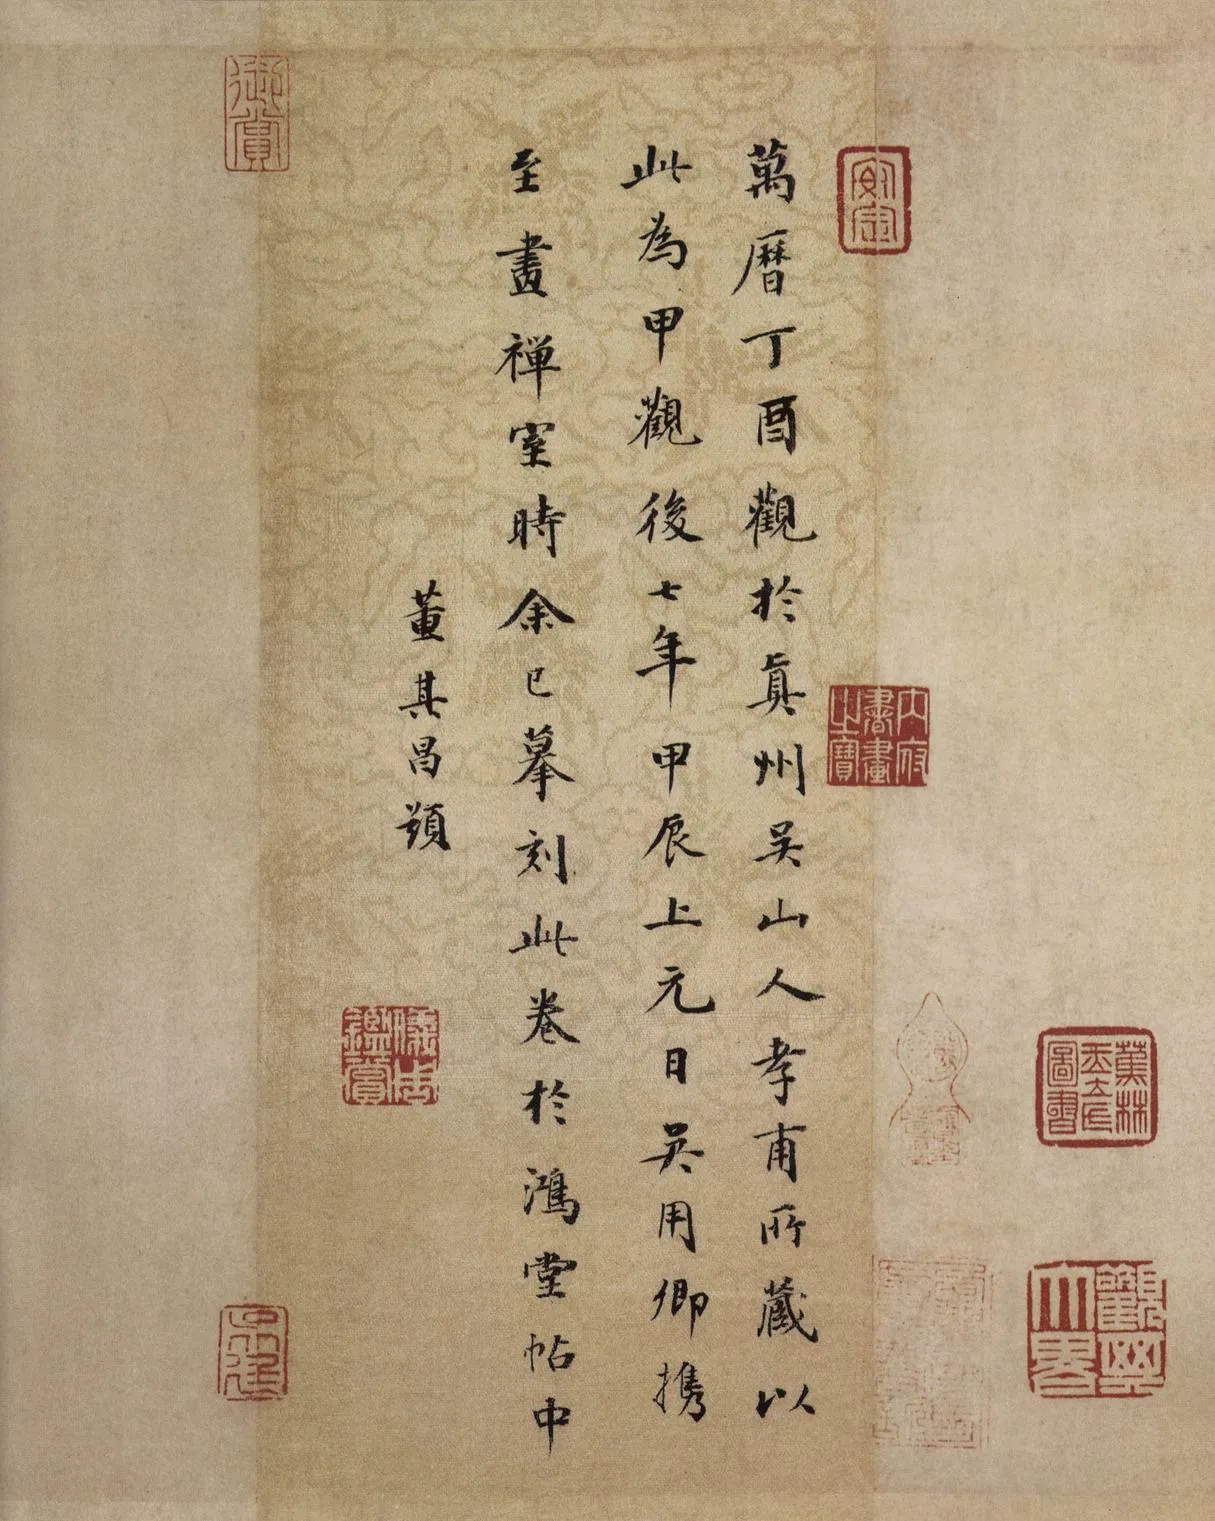 萬曆丁酉觀於真州吴山人孝甫所藏以
此為甲觀後七年甲辰上元日吴用卿携
至畫禪室時余已摹刻此卷於鴻堂帖中
董其昌題
御賞
内府書畫之寶
蕉林玉立氏圖書
觀其大略